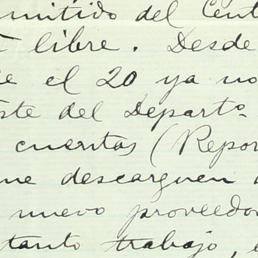 mitido del Cent
libre. Desde
e el 20 ya no
ste del Departº
cuentas (Repor
me descarguen
nuevo proveedor
tanto trabajo,